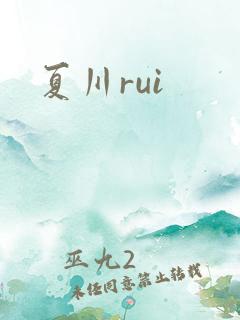 夏川rui
巫九2
未经同意禁止转载